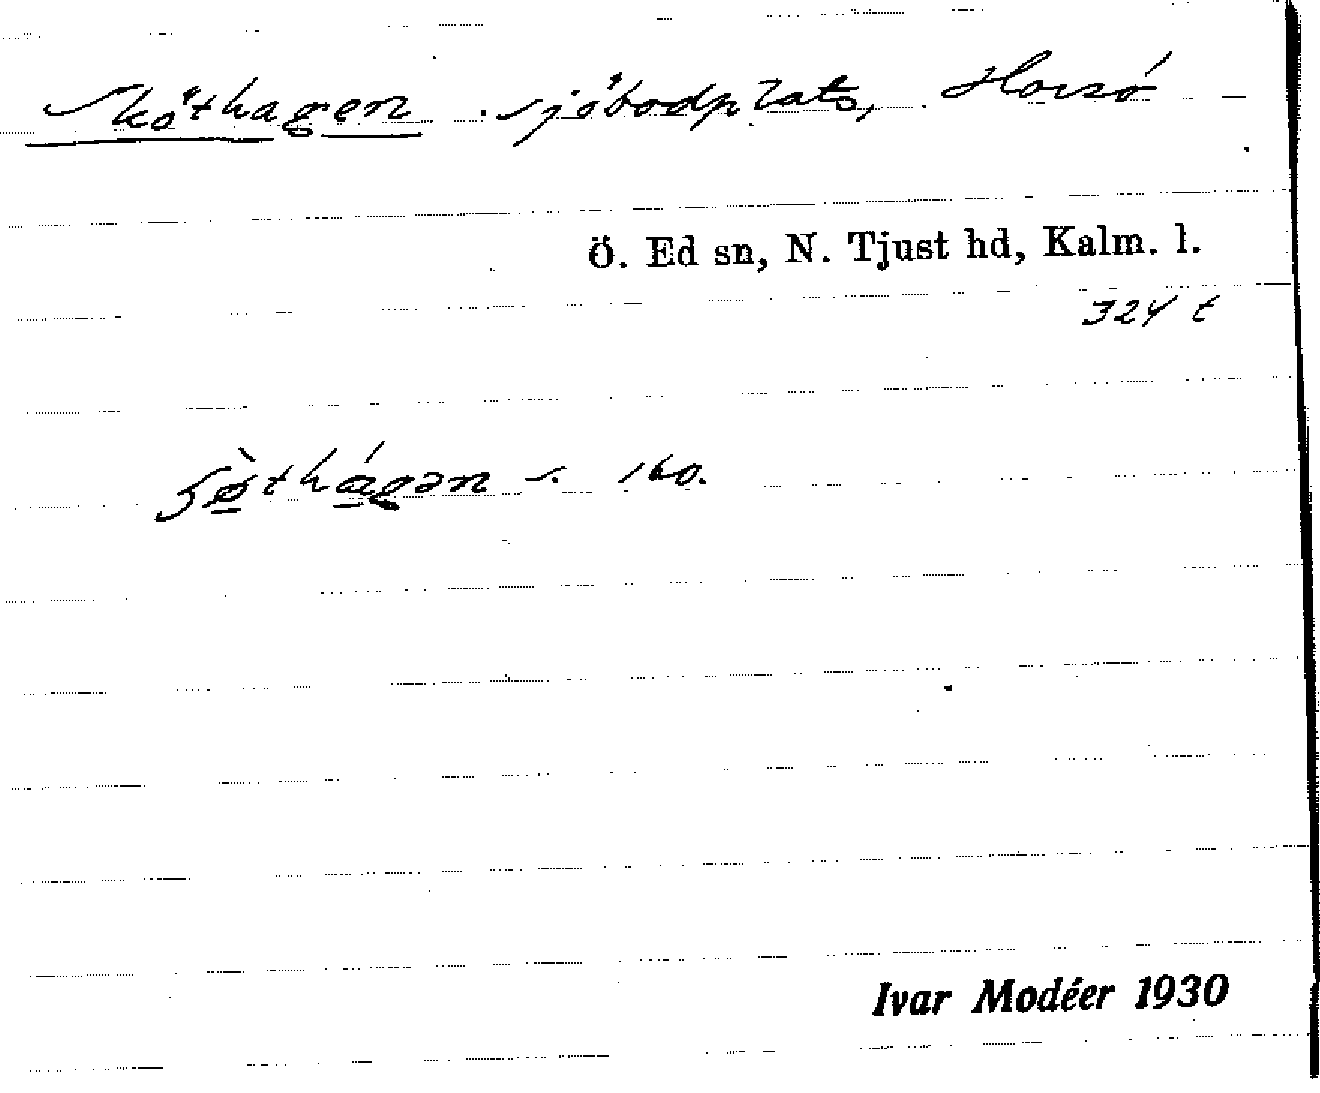 Sköthagen sjöbodplats, Horsö
Ö. Ed sn, N. Tjust hd, Kalm. l.
324 t
s. 160.
Ivar Modéer 1930